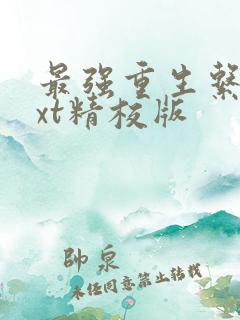 最强重生
xt精校版
帥泉
未经同意禁止转载